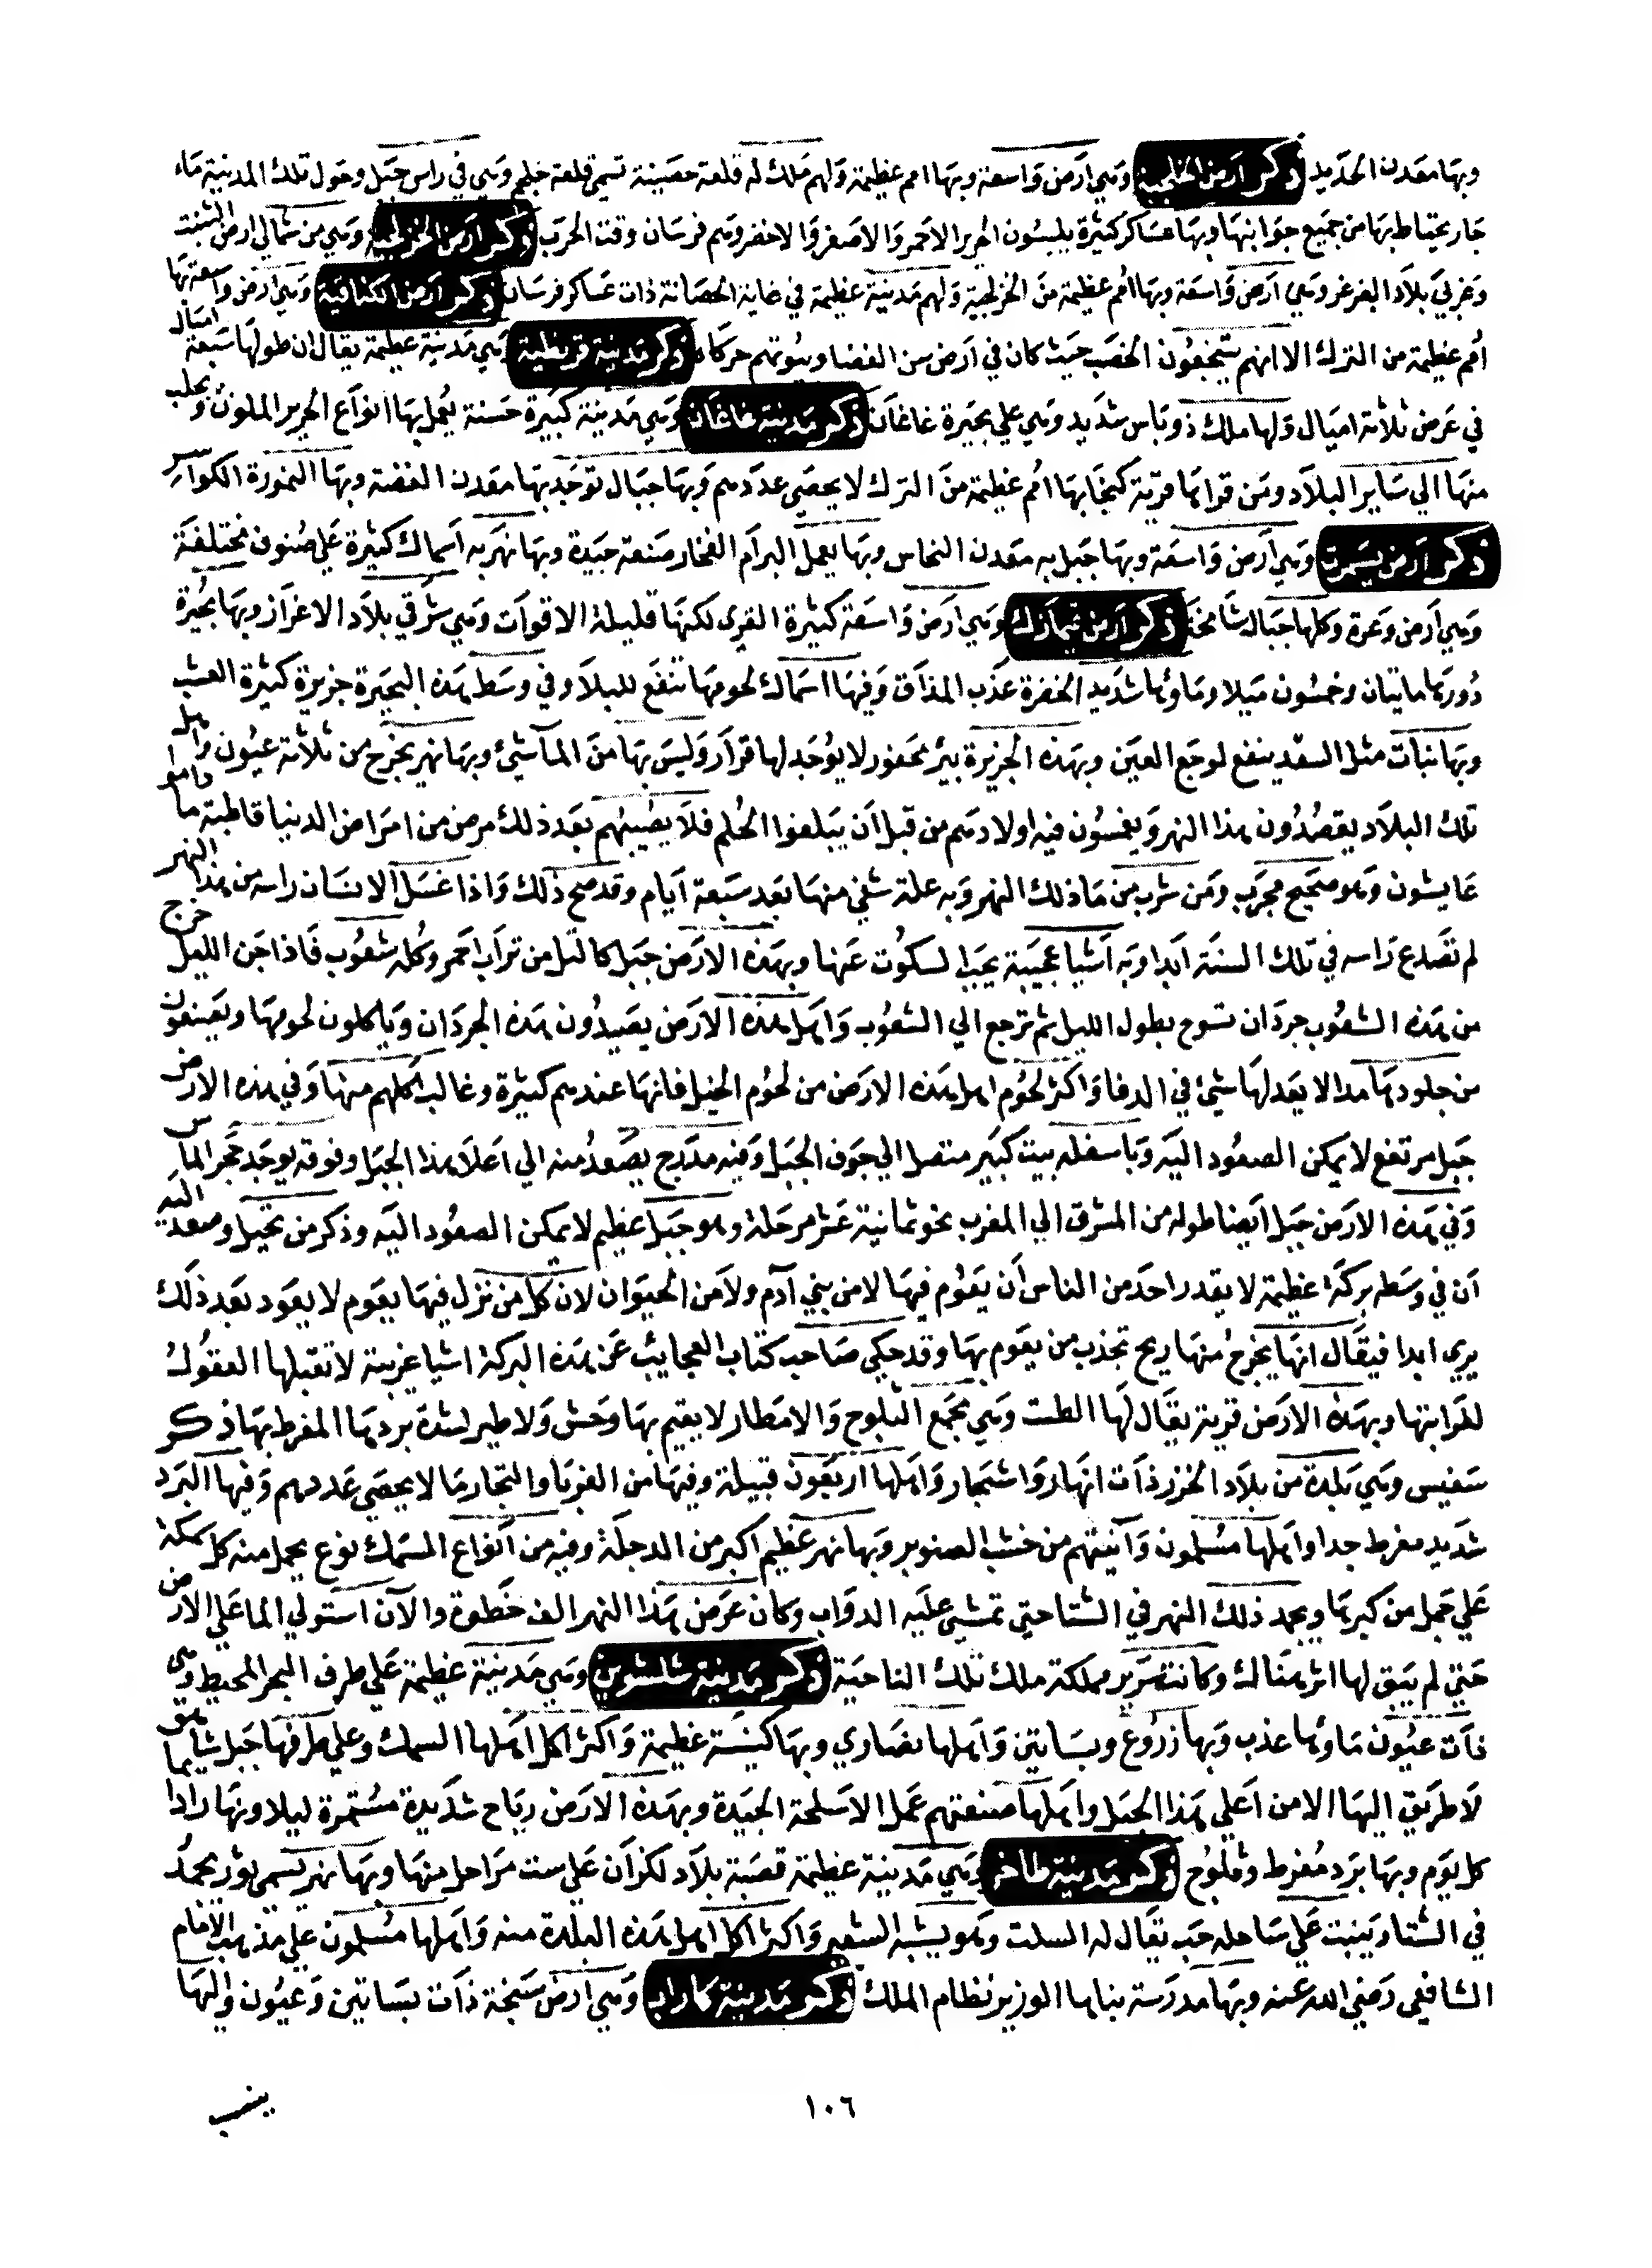 وبها معدن الحديد ذكر ارض الخلجية وهي ارض واسعة وبها امم عظيمة ولهم ملك له قلعة حصينة تسمى قلعة خلم وهي في راس جبل وحول تلك المدينة ماء
جار يحتاط بها من جميع جوانبها وبها عساكر كثيرة يلبسون الحرير الاحمر والاصفر والاخضر وهم فرسان وقت الحرب ذكر ارض الخزلجية وهي من شمالي ارض التبت
وغربي بلاد البغرغر وهي ارض واسعة وبها امم عظيمة من الخزلجية ولهم مدينة عظيمة في غاية الحصانة ذات عساكر فرسان ذكر ارض الكيماكية وهي ارض واسعة بها
امم عظيمة من الترك الا انهم يتبعون الخصب حيث كان في ارض من الفضا وبيوتهم خركاه ذكر مدينة قرنطية وهي مدينة عظيمة يقال ان طولها سبعة اميال
في عرض ثلاثة اميال ولها ملك ذو باس شديد وهي علي بحيرة غاغان ذكر مدينة غاغان وهي مدينة كبيرة حسنة يعمل بها انواع الحرير الملون ويجلب
منها الي ساير البلاد ومن قراها قرية كيخا بها امم عظيمة من الترك لا يحصي عددهم وبها جبال توجد بها معدن الفضة وبها النمورة الكواسر
ذكر ارض بسجرت وهي ارض واسعة وبها جبل به معدن النحاس وبها يعمل البرام الفخار صنعة جيدة وبها نهر به اسماك كثيرة علي صنوف مختلفة
وهي ارض وعرة وكلها جبال شامخة ذكر ارض قيمازك وهي ارض واسعة كثيرة القري لكنها قليلة الاقوات وهي شرقي بلاد الاغزاز وبها بحيرة
دورها مايتان وخمسون ميلا وماؤها شديد الخضرة عذب المذاق وفيها اسماك لحومها تنفع للبلاد وفي وسط هذه البحيرة جزيرة كثيرة العشب
وبها نبات مثل السعد ينفع لوجع العين وبهذه الجزيرة بير محفور لا يوجد لها قرار وليس بها من الماء شيئ وبها نهر يخرج من ثلاثة عيون واهل
تلك البلاد يقصدون هذا النهر ويغمسون فيه اولادهم من قبل ان يبلغوا الحلم فلا يصيبهم بعد ذلك مرض من امراض الدنيا قاطبة ما داموا
عايشون وهو صحيح مجرب ومن شرب من ما ذلك النهر وبه علة شفي منها بعد سبعة ايام وقد صح ذلك واذا غسل الانسان راسه من هذا النهر
لم تصدع راسه في تلك السنة ابدا وبه اشيا عجيبة يجب السكوت عنها وبهذه الارض جبل كالتل من تراب احمر وكله شعوب فاذا جن الليل خرج
من هذه الشعوب جردان تسوح بطول الليل ثم ترجع الي الشعوب واهل هذه الارض يصيدون هذه الجردان وياكلون لحومها ويصنعون
من جلودها مدا لا يعدلها شيئ في الدفا واكثر لحوم اهل هذه الارض من لحوم الخيل فانها عندهم كثيرة وغالب اكلهم منها وفي هذه الارض
جبل مرتفع لا يمكن الصعود اليه وباسفله بيت كبير متصل الي جوف الجبل وفيه مدرج يصعد منه الي اعلا هذا الجبل وفوقه يوجد حجر الماس
وفي هذه الارض جبل ايضا طوله من المشرق الي المغرب نحو ثمانية عشر مرحلة وهو جبل عظيم لا يمكن الصعود اليه وذكر من تحيل وصعد اليه
ان في وسطه بركة عظيمة لا يقدر احد من الناس ان يعوم فيها لا من بني آدم ولا من الحيوان لان كل من نزل فيها يعوم لا يعود بعد ذلك
يري ابدا فيقال انها يخرج منها ريح تجذب من يعوم بها وقد حكي صاحب كتاب العجايب عن هذه البركة اشيا غريبة لا تقبلها العقول
لغرابتها وبهذه الارض قرية يقال لها الطست وهي مجمع الثلوج والامطار لا يقيم بها وحش ولا طير لشدة بردها المفرط بها ذكر
سقسين وهي بلدة من بلاد الخزر ذات انهار واشجار واهلها اربعون قبيلة وفيها من الغربا والتجار ما لا يحصي عددهم وفيها البرد
شديد مفرط جدا واهلها مسلمون وآنيتهم من خشب الصنوبر وبها نهر عظيم اكبر من الدجلة وفيه من انواع السمك نوع يحمل منه كل سمكة
علي جمل من كبرها ويجمد ذلك النهر في الشتا حتي تمشي عليه الدواب وكان عرض هذا النهر الف خطوة والآن استولي الما علي الارض
حتي لم يبق لها اثر هناك وكانت سرير مملكة ملك تلك الناحية ذكر مدينة شلشوين وهي مدينة عظيمة علي طرف البحر المحيط وهي
ذات عيون ماؤها عذب وبها زروع وبساتين واهلها نصاري وبها كنيسة عظيمة واكثر اكل اهلها السمك وعلي طرفها جبل شاهق
لا طريق اليها الا من اعلي هذا الجبل واهلها صنعتهم عمل الاسلحة الجيدة وبهذه الارض رياح شديدة مستمرة ليلا ونهارا دايما
كل يوم وبها برد مفرط وثلوج ذكر مدينة طاخر وهي مدينة عظيمة قصبة بلاد لكزان علي ست مراحل منها وبها نهر يسمي ثور يجمد
في الشتا وينبت علي ساحله حب يقال له السلت وهو يشبه الشعير واكثر اكل اهل هذه البلدة منه واهلها مسلمون علي مذهب الامام
الشافعي رضي الله عنه وبها مدرسة بناها الوزير نظام الملك ذكر مدينة فاراب وهي ارض سبخة ذات بساتين وعيون واليها
١٠٦
ينسب